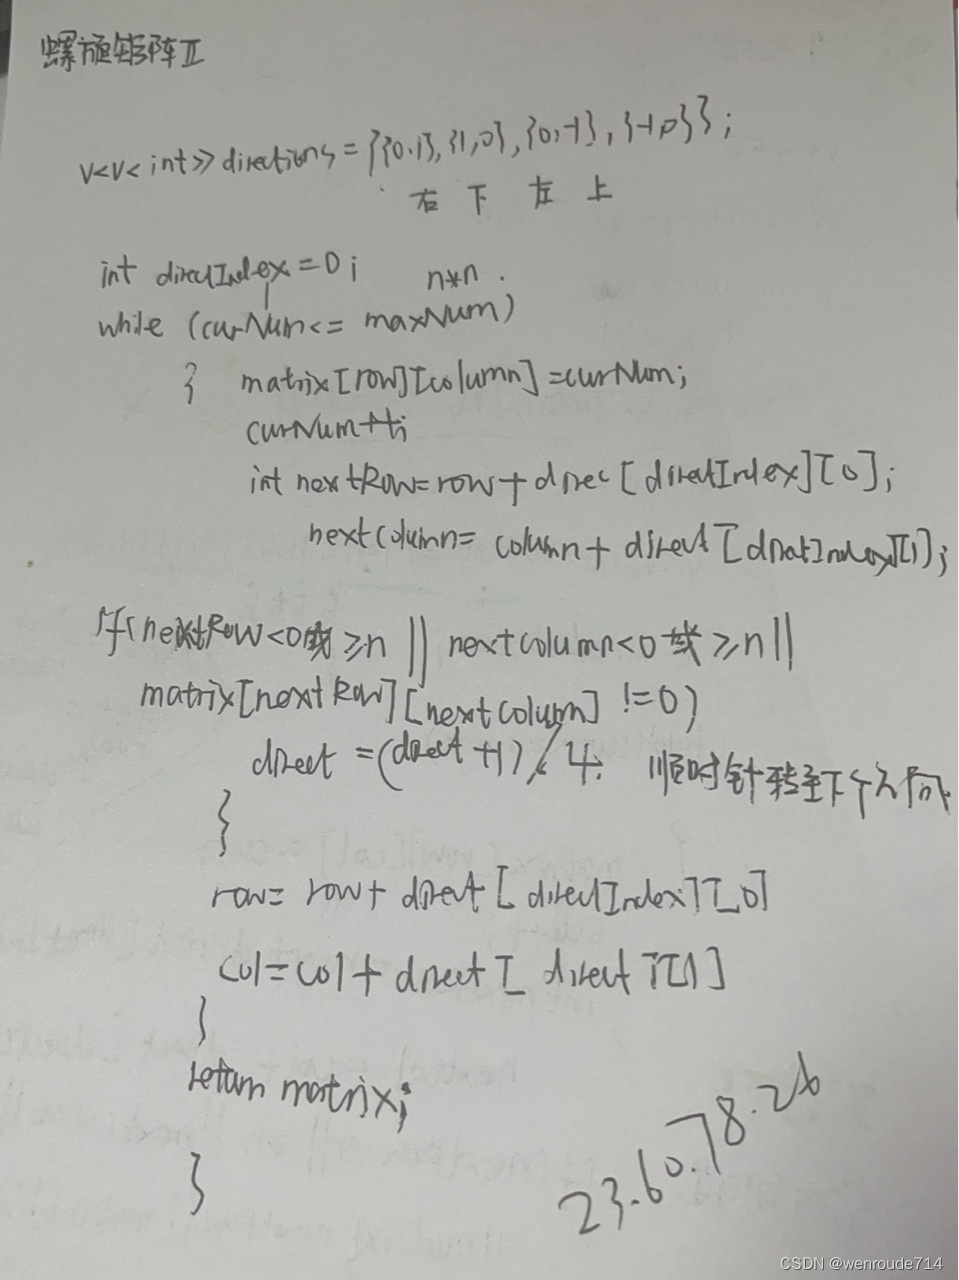 螺旋矩阵II
v<v<int>> directions = {{0,1},{1,0},{0,-1},{-1,0}};
右 下 左 上
int directIndex=0;
n*n.
while (curNum<= maxNum)
{ matrix[row][column]=curNum;
curNum++;
int nextRow=row+direc[directIndex][0];
nextcolumn= column+direct[directIndex][1];
if(nextRow<0或≥n || nextcolumn<0或≥n||
matrix[nextRow][nextColumn] !=0)
direct =(direct+1)%4. 顺时针转至下个方向
}
row= row+direct[directIndex][0]
col=col+direct[direct][1]
}
return matrix;
}
23.60.78.26
CSDN @wenroude714